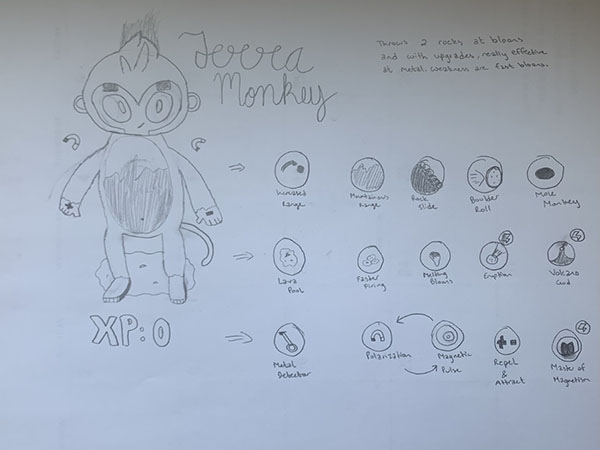 Terra
Monkey
Throws 2 rocks at bloons
and with upgrades, really effective
at metal. weakness are fast bloons.
Increased
Range
Mountainous
Range
Rock
Slide
Boulder
Roll
Mole
Monkey
Lava
Pool
Faster
Firing
Melting
Bloons
Eruption
Volcano
God
XP:0
Metal
Detector
Polarization
Magnetic
Pulse
Repel
&
Attract
Master of
Magnetism